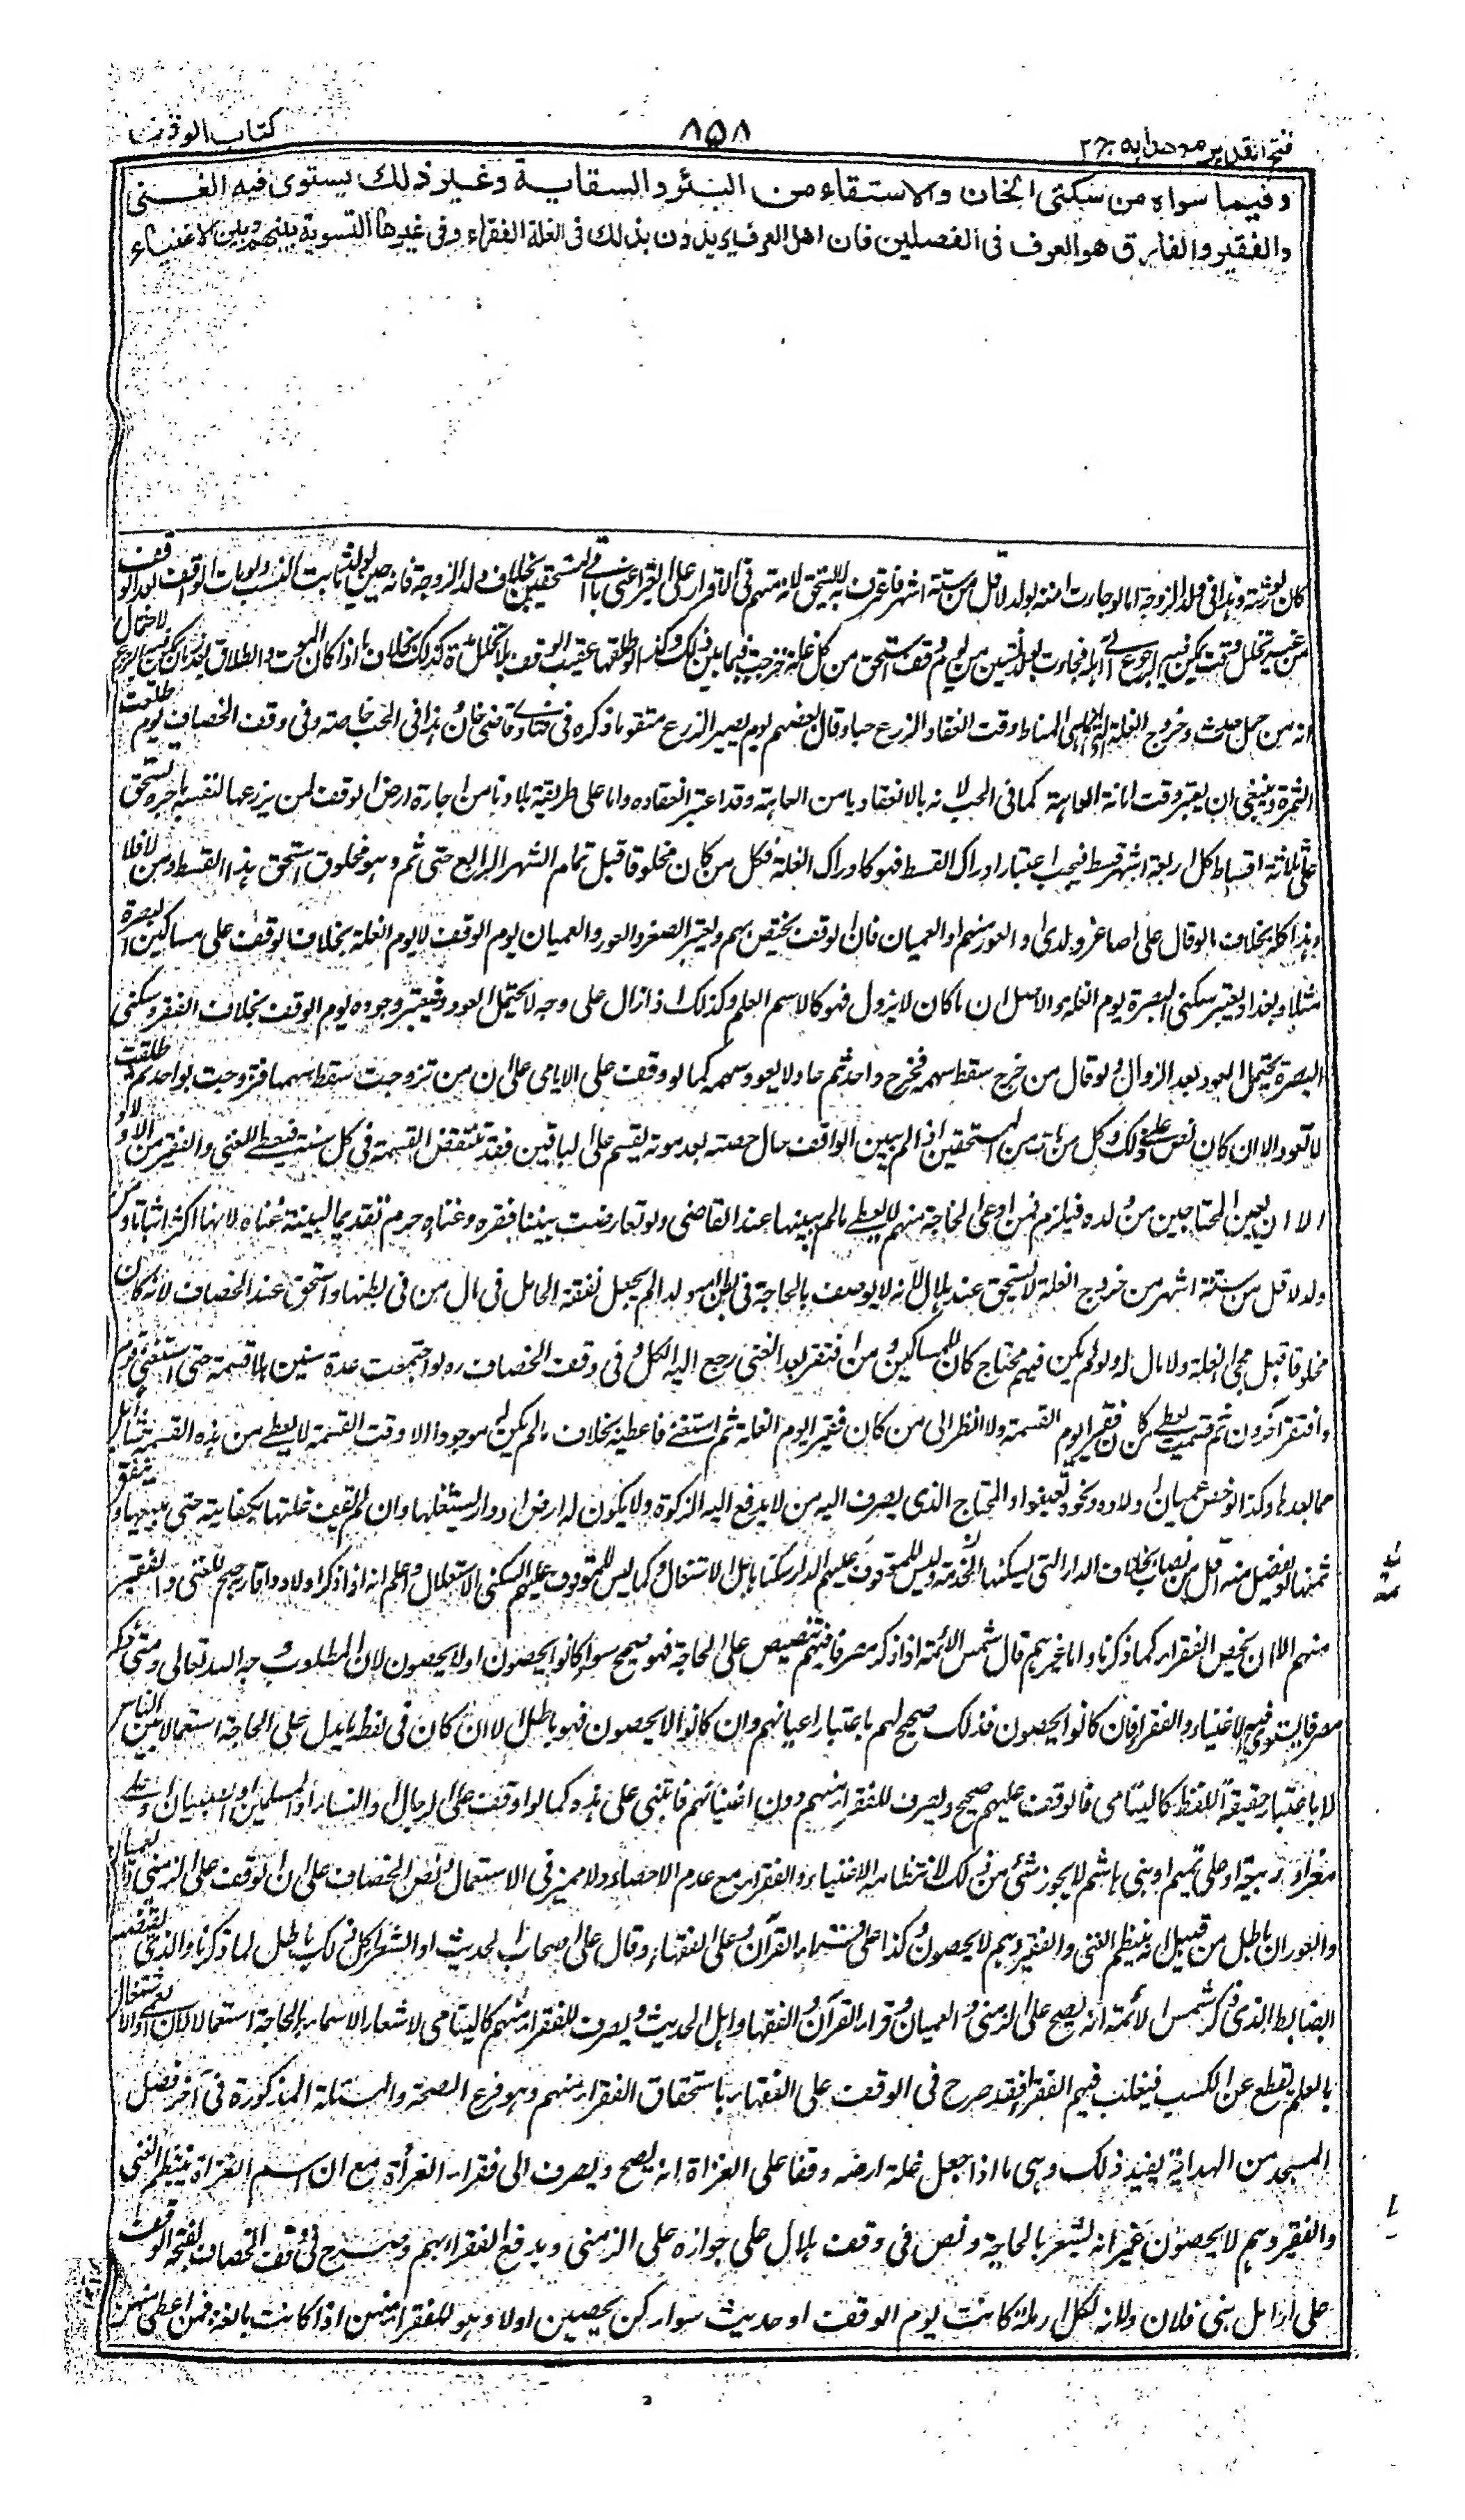 فتح القدير مع هدايه ج ٢
٨٥٨
كتاب الوقف
وفيما سواه من سكنى الخان والاستقاء من البئر والسقاية وغير ذلك يستوى فيه الغنى
والفقير والفارق هو العرف فى الفصلين فان اهل العرف يريدون بذلك فى الغلة الفقراء وفى غيرها التسوية بينهم وبين الاغنياء
كان لورثته وهذا فى ولد الزوجة اما لو جاءت امته بولد لاقل من ستة اشهر فاعترف به لا يستحق لانه متهم فى الاقرار على الغير اعنى باقى المستحقين بخلاف ولد الزوجة فانه حين يولد ثابت النسب ولو مات الواقف بعد الوقف
من غير تخلل وقت يمكن فيه الرجوع الى اهله فجاءت بولد لسنتين من يوم وقف استحق من كل غلة خرجت فيما بين ذلك وكذا لو طلقها عقيب الوقف بلا تخلل مدة كذلك بخلاف ما اذا كان الموت والطلاق بعد لاحتمال
انه من حمل حادث وخروج الغلة التى هى المناط وقت انعقاد الزرع حبا وقال بعضهم يوم يصير الزرع متقوما ذكره فى فتاوى قاضى خان وهذا فى الحب خاصة وفى وقف الخصاف يوم طلعت
الثمرة وينبغى ان يعتبر وقت امانة العاهة كما فى الحب لانه بالانعقاد يامن العاهة وقد اعتبر انعقاده واما على طريقة بلادنا من اجارة ارض الوقف لمن يزرعها لنفسه باجرة يستحق
على ثلاثة اقساط كل اربعة اشهر قسط فيجب اعتبار ادراك القسط فهو كادراك الغلة فكل من كان مخلوقا قبل تمام الشهر الرابع حتى تم وهو مخلوق استحق هذا القسط ومن لا فلا
وهذا كله بخلاف ما لو قال على اصاغر ولدى او العور منهم او العميان فان الوقف يختص بهم ويعتبر الصغر والعور والعميان يوم الوقف لا يوم الغلة بخلاف الوقف على مساكين البصرة
مثلا وبغداد يعتبر سكنى البصرة يوم الغلة والاصل ان ما كان لا يزول فهو كالاسم العلم وكذلك اذا زال على وجه لا يحتمل العود فيعتبر وجوده يوم الوقف بخلاف الفقر وسكنى
البصرة يحتمل العود بعد الزوال ولو قال من خرج سقط سهمه فخرج واحد ثم عاد لا يعود سهمه كما لو وقف على الايامى على ان من تزوجت سقط سهمها فتزوجت بواحد ثم طلقت
لا تعود الا ان كان نص على ذلك وكل من مات من المستحقين اذا لم يبين الواقف حال حصته بعد موته يقسم على الباقين فقد تنتقض القسمة فى كل سنة فيعطى للغنى والفقير من الاولاد
الا ان يعين المحتاجين من ولده فيلزم فمن ادعى الحاجة منهم لا يعطى ما لم يبينها عند القاضى ولو تعارضت بينتا فقره وغناه حرم تقديما لبينة غناه لانها اكثر اثباتا ومن
ولد لاقل من ستة اشهر من خروج الغلة لا يستحق عند هلال لانه لا يوصف بالحاجة فى بطن امه ولذا لم يجعل نفقة الحامل فى مال من فى بطنها واستحق عند الخصاف لانه كان
مخلوقا قبل مجئ الغلة ولا مال له ولو لم يكن فيهم محتاج كان للمساكين ومن افتقر بعد الغنى رجع اليه الكل وفى وقف الخصاف ره لو اجتمعت عدة سنين بلا قسمة حتى استغنى قوم
وافتقر آخرون ثم قسمت يعطى من كان فقيرا يوم القسمة ولا انظر الى من كان فقيرا يوم الغلة ثم استغنى فاعطيه بخلاف ما لم يكن موجودا الا وقت القسمة لا يعطى من هذه القسمة شيئا بل
مما بعدها وكذا لو خص عميان اولاده ونحوه تعينوا والمحتاج الذى يصرف اليه من لا يدفع اليه الزكوة ولا يكون له ارض او دار يستغلها وان لم تف غلتها بكفايته حتى يبيعها وينفق
ثمنها او يفضل منه اقل من نصاب بخلاف الدار التى يسكنها وعبد الخدمة وليس للموقوف عليهم الدار سكناها بل الاستغلال كما ليس للموقوف عليهم السكنى الاستغلال واعلم انه اذا ذكر اولاده واقاربه صح للغنى والفقير
منهم الا ان يخص الفقراء كما ذكرنا واما غيرهم قال شمس الائمة اذا ذكر مصرفا فيهم تنصيص على الحاجة فهو صحيح سواء كانوا يحصون او لا يحصون لان المطلوب وجه الله تعالى ومتى ذكر
مصرفا يستوى فيه الاغنياء والفقراء فان كانوا يحصون فذلك صحيح لهم باعتبار اعيانهم وان كانوا لا يحصون فهو باطل الا ان كان فى لفظه ما يدل على الحاجة استعمالا بين الناس
لا باعتبار حقيقة اللفظ كاليتامى فالوقف عليهم صحيح ويصرف للفقراء منهم دون اغنيائهم فانبنى على هذه كما لو اوقف على الرجال او النساء او المسلمين او الصبيان او على
مضر او ربيعة او على تميم او بنى هاشم لا يجوز شئ من ذلك لانتظامه الاغنياء والفقراء مع عدم الاحصاء ولا مميز فى الاستعمال ونص الخصاف على ان الوقف على الزمنى والعميان
والعوران باطل من قبل انه ينتظم الغنى والفقير وهم لا يحصون وكذا على قراء القرآن وعلى الفقهاء وقال على اصحاب الحديث او الشعراء كل ذلك باطل لما ذكرنا والذى يقتضيه
الضابط الذى ذكره شمس الائمة انه يصح على الزمنى والعميان وقراء القرآن والفقهاء واهل الحديث ويصرف للفقراء منهم كاليتامى لاشعار الاسماء بالحاجة استعمالا لان العمى والاشتغال
بالعلم يقطع عن الكسب فيغلب فيهم الفقر فقد صرح فى الوقف على الفقهاء باستحقاق الفقراء منهم وهو فرع الصحة والمسئلة المذكورة فى آخر فصل
المسجد من الهداية يفيد ذلك وهى ما اذا جعل غلة ارضه وقفا على الغزاة انه يصح ويصرف الى فقراء الغزاة مع ان اسم الغزاة ينتظم الغنى
والفقير وهم لا يحصون غير انه يشعر بالحاجة ونص فى وقف هلال على جوازه على الزمنى ويدفع لفقرائهم وصرح فى وقف الخصاف بصحة الوقف
على ارامل بنى فلان وانه لكل ارملة كانت يوم الوقف او حدثت سواء كن يحصين او لا وهو للفقراء منهن اذا كانت بالغة فمن اعطى منهن